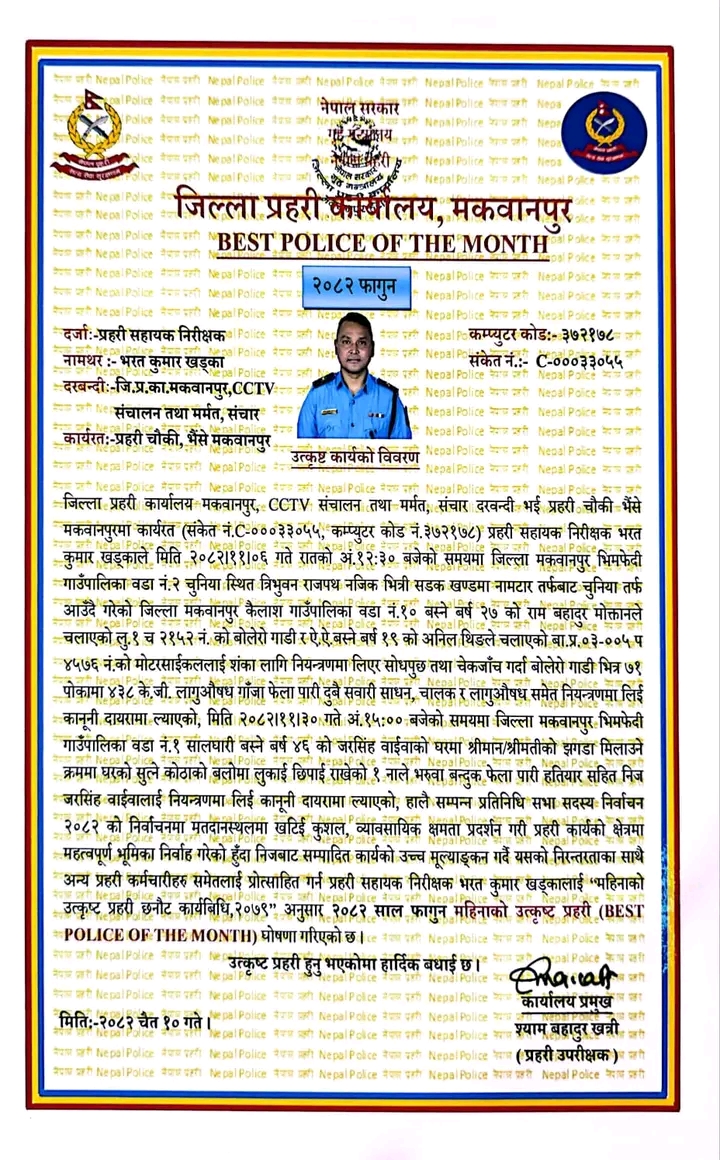 नेपाल सरकार
गृह मन्त्रालय
नेपाल प्रहरी
जिल्ला प्रहरी कार्यालय, मकवानपुर
BEST POLICE OF THE MONTH
२०८२ फागुन
दर्जा:-प्रहरी सहायक निरीक्षक
कम्प्युटर कोड:- ३७२१७८
नामथर :- भरत कुमार खड्का
संकेत नं.:- C-०००३३०५५
दरबन्दी:-जि.प्र.का.मकवानपुर,CCTV
संचालन तथा मर्मत, संचार
कार्यरत:-प्रहरी चौकी, भैंसे मकवानपुर
उत्कृष्ट कार्यको विवरण
जिल्ला प्रहरी कार्यालय मकवानपुर, CCTV संचालन तथा मर्मत, संचार दरवन्दी भई प्रहरी चौकी भैंसे
मकवानपुरमा कार्यरत (संकेत नं.C-०००३३०५५, कम्प्युटर कोड नं.३७२१७८) प्रहरी सहायक निरीक्षक भरत
कुमार खड्काले मिति २०८२।११।०६ गते रातको अं.१२:३० बजेको समयमा जिल्ला मकवानपुर भिमफेदी
गाउँपालिका वडा नं.२ चुनिया स्थित त्रिभुवन राजपथ नजिक भित्री सडक खण्डमा नामटार तर्फबाट चुनिया तर्फ
आउँदै गरेको जिल्ला मकवानपुर कैलाश गाउँपालिका वडा नं.१० बस्ने बर्ष २७ को राम बहादुर मोक्तानले
चलाएको लु.१ च २१५२ नं. को बोलेरो गाडी र ऐ.ऐ.बस्ने बर्ष १९ को अनिल थिङले चलाएको बा.प्र.०३-००५ प
४५७६ नं.को मोटरसाईकललाई शंका लागि नियन्त्रणमा लिएर सोधपुछ तथा चेकजाँच गर्दा बोलेरो गाडी भित्र ७१
पोकामा ४३८ के.जी. लागुऔषध गाँजा फेला पारी दुबै सवारी साधन, चालक र लागुऔषध समेत नियन्त्रणमा लिई
कानूनी दायरामा ल्याएको, मिति २०८२।११।३० गते अं.१५:०० बजेको समयमा जिल्ला मकवानपुर भिमफेदी
गाउँपालिका वडा नं.१ सालघारी बस्ने बर्ष ४६ को जरसिंह वाईवाको घरमा श्रीमान/श्रीमतीको झगडा मिलाउने
क्रममा घरको सुत्ने कोठाको बलोमा लुकाई छिपाई राखेको १ नाले भरुवा बन्दुक फेला पारी हतियार सहित निज
जरसिंह वाईवालाई नियन्त्रणमा लिई कानूनी दायरामा ल्याएको, हालै सम्पन्न प्रतिनिधि सभा सदस्य निर्वाचन
२०८२ को निर्वाचनमा मतदानस्थलमा खटिई कुशल, व्यावसायिक क्षमता प्रदर्शन गरी प्रहरी कार्यको क्षेत्रमा
महत्वपूर्ण भूमिका निर्वाह गरेको हुँदा निजबाट सम्पादित कार्यको उच्च मूल्याङ्कन गर्दै यसको निरन्तरताका साथै
अन्य प्रहरी कर्मचारीहरु समेतलाई प्रोत्साहित गर्न प्रहरी सहायक निरीक्षक भरत कुमार खड्कालाई “महिनाको
उत्कृष्ट प्रहरी छनौट कार्यबिधि,२०७९” अनुसार २०८२ साल फागुन महिनाको उत्कृष्ट प्रहरी (BEST
POLICE OF THE MONTH) घोषणा गरिएको छ।
उत्कृष्ट प्रहरी हुनु भएकोमा हार्दिक बधाई छ।
कार्यालय प्रमुख
मिति:-२०८२ चैत १० गते।
श्याम बहादुर खत्री
( प्रहरी उपरीक्षक )